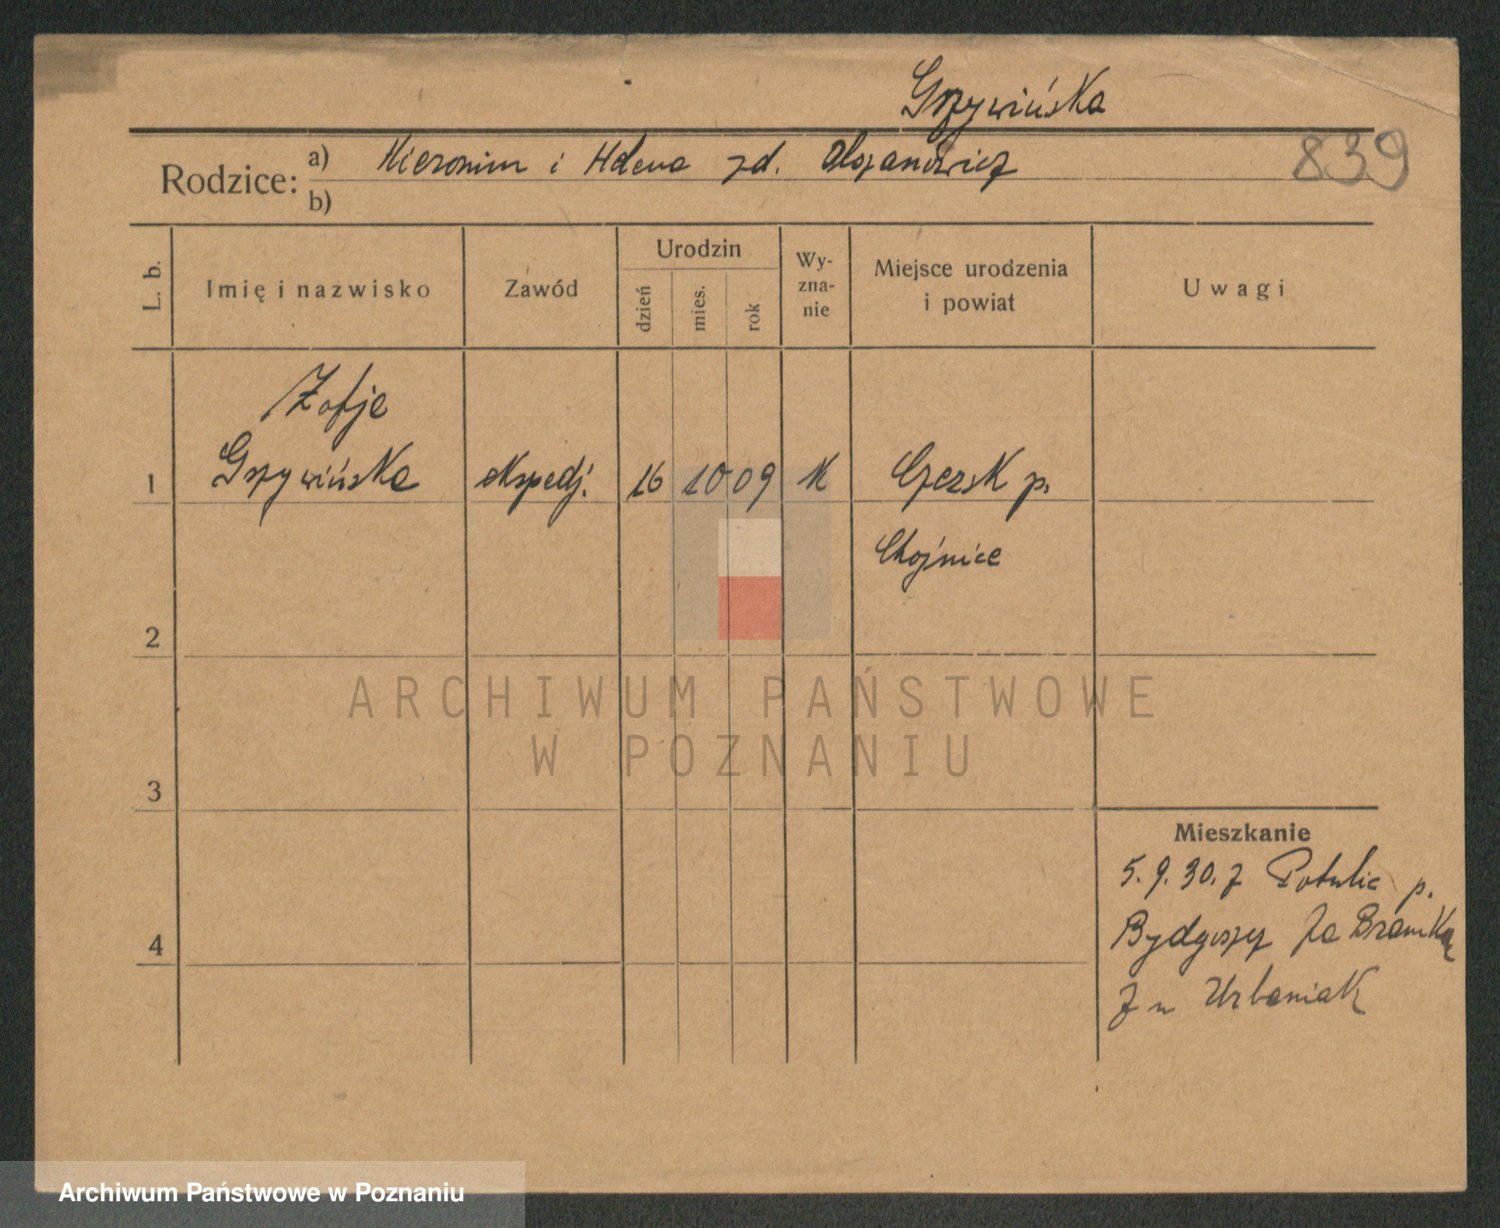 Grzywińska
839
Rodzice: a) Hieronim i Helena zd. Olszanowicz
b)
L. b.
Imię i nazwisko
Zawód
Urodzin
dzień
mies.
rok
Wy-
zna-
nie
Miejsce urodzenia
i powiat
Uwagi
Zofja
1 Grzywińska ekspedj. 16 10 09 k Czersk p.
Chojnice
2
3
4
Mieszkanie
5.9.30. z Potulic p.
Bydgoszcz
Urbaniak
ARCHIWUM PAŃSTWOWE
W POZNANIU
Archiwum Państwowe w Poznaniu